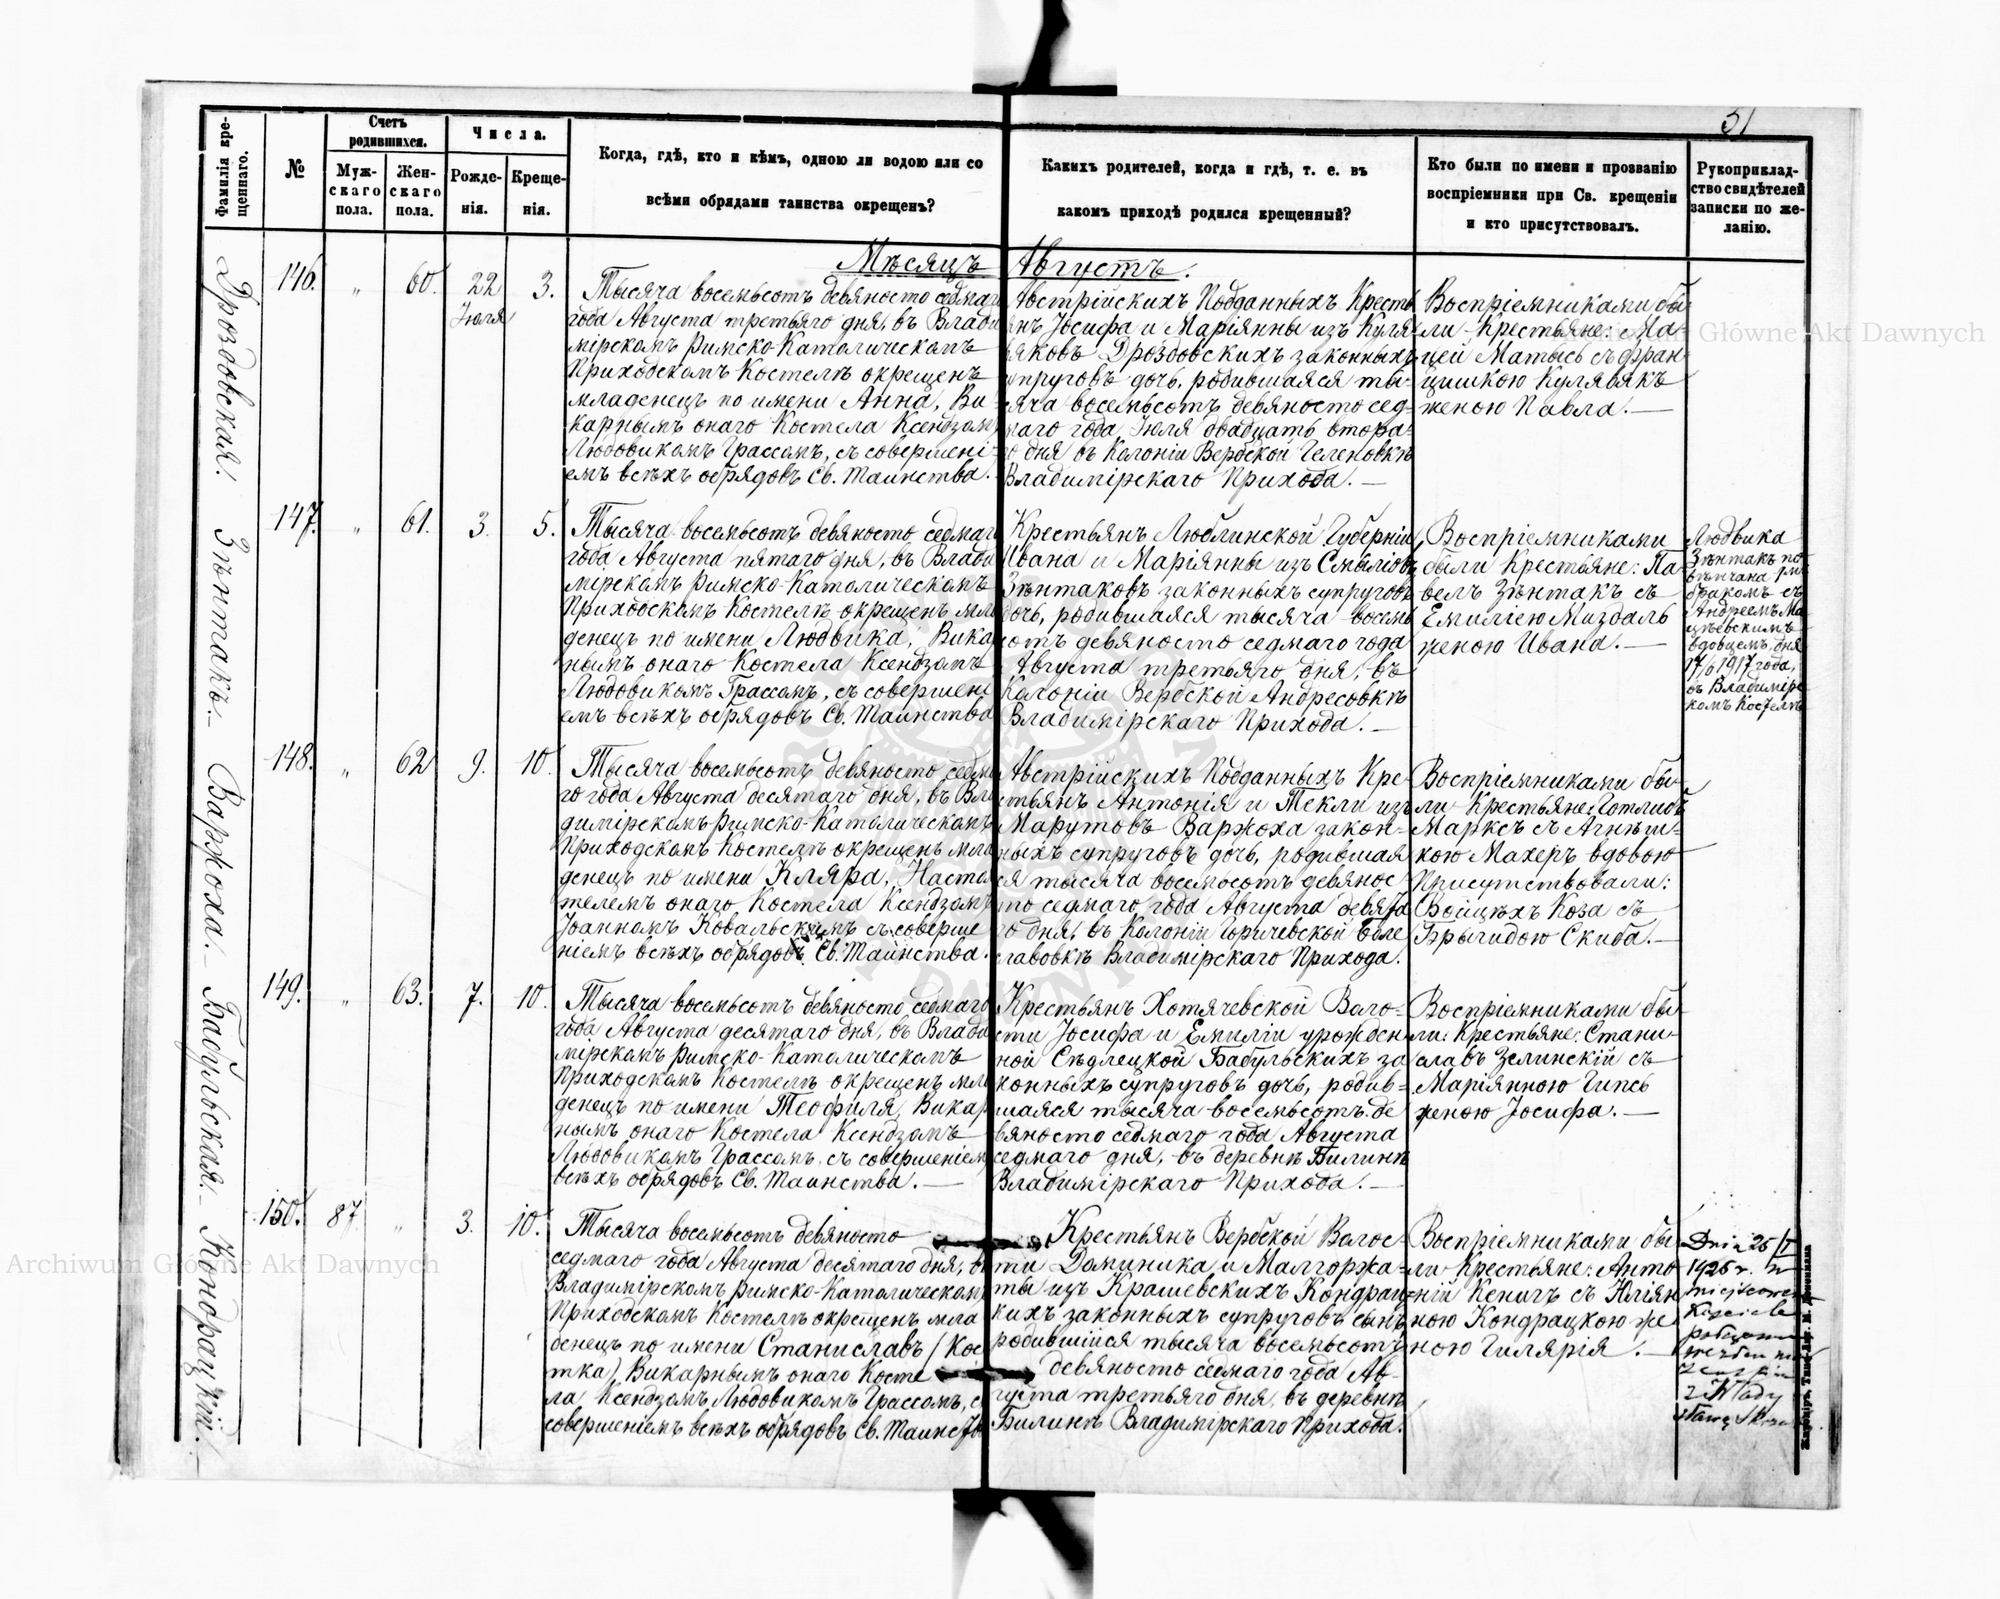 51
Фамилія кре-
щеннаго.
№
Счетъ
родившихся.
Муж-
скаго
пола.
Жен-
скаго
пола.
Числа.
Рожде-
нія.
Креще-
нія.
Когда, гдѣ, кто и кѣмъ, одною ли водою или со
всѣми обрядами таинства окрещенъ?
Какихъ родителей, когда и гдѣ, т. е. въ
какомъ приходѣ родился крещенный?
Кто были по имени и прозванію
воспріемники при Св. крещеніи
и кто присутствовалъ.
Рукоприклад-
ство свидѣтелей
записки по же-
ланію.
Мѣсяцъ Августъ.
Дроздовская.
146. „ 60. 22 Іюля 3.
Тысяча восемьсотъ девяносто седмаго
года Августа третьяго дня, въ Влади
мірскомъ Римско-Католическомъ
Приходскомъ Костелѣ окрещенъ
младенецъ по имени Анна, Ви-
карнымъ онаго Костела Ксендзомъ
Людовикомъ Грассомъ, съ совершені-
емъ всѣхъ обрядовъ Св. Таинства.
Австрійскихъ Подданныхъ Кресть
янъ Іосифа и Маріянны изъ Куля-
вяковъ Дроздовскихъ законныхъ
супруговъ дочь, родившаяся ты-
сяча восемьсотъ девяносто сед-
маго года Іюля двадцать втора-
го дня въ Колоніи Вербской Геленовкѣ
Владимірскаго Прихода.—
Воспріемниками бы
ли Крестьяне: Ма-
цей Матысь съ Фран
цишкою Кулявякъ
женою Павла.—
Зѣнтакъ.
147. „ 61. 3. 5.
Тысяча восемьсотъ девяносто седмаго
года Августа пятаго дня, въ Влади
мірскомъ Римско-Католическомъ
Приходскомъ Костелѣ окрещенъ мла
денецъ по имени Людвика, Викар
нымъ онаго Костела Ксендзомъ
Людовикомъ Грассомъ, съ совершені
емъ всѣхъ обрядовъ Св. Таинства
Крестьянъ Люблинской Губерніи
Ивана и Маріянны изъ Смыліовъ
Зѣнтаковъ законныхъ супруговъ
дочь, родившаяся тысяча восемь
сотъ девяносто седмаго года
Августа третьяго дня, въ
Колоніи Вербской Андресовкѣ
Владимірскаго Прихода.—
Воспріемниками
были Крестьяне: Па-
велъ Зѣнтакъ съ
Емиліею Миздаль
женою Ивана.—
Людвика
Зѣнтакъ по
вѣнчана
бракомъ съ
Андреемъ Ма
цѣевскимъ
вдовцемъ, дня
1917 года,
въ Владимірс
комъ Костелѣ
Варжоха.
148. „ 62 9. 10.
Тысяча восемьсотъ девяносто седма
го года Августа десятаго дня, въ Вла
димірскомъ Римско-Католическомъ
Приходскомъ Костелѣ окрещенъ мла
денецъ по имени Кляра, Настоя
телемъ онаго Костела Ксендзомъ
Іоанномъ Ковальскимъ съ соверше
ніемъ всѣхъ обрядовъ Св. Таинства.
Австрійскихъ Подданныхъ Кре-
стьянъ Антонія и Текли изъ
Марутовъ Варжоха закон-
ныхъ супруговъ дочь, родившая
ся тысяча восемьсотъ девянос
то седмаго года Августа девята
го дня, въ Колоніи Горичевской Боле
славовкѣ Владимірскаго Прихода.
Воспріемниками бы-
ли Крестьяне: Готлибъ
Марксъ съ Агнѣш-
кою Махеръ вдовою
Присутствовали:
Войцѣхъ Коза съ
Брыгидою Скиба.—
Бабульская
149. „ 63. 7. 10.
Тысяча восемьсотъ девяносто седмаго
года Августа десятаго дня, въ Влади
мірскомъ Римско-Католическомъ
Приходскомъ Костелѣ окрещенъ мла
денецъ по имени Теофиля, Викар
нымъ онаго Костела Ксендзомъ
Людовикомъ Грассомъ съ совершеніемъ
всѣхъ обрядовъ Св. Таинства.—
Крестьянъ Хотячевской Воло-
сти Іосифа и Емиліи урожден
ной Сѣдлецкой Бабульскихъ за
конныхъ супруговъ дочь, родив-
шаяся тысяча восемьсотъ де
вяносто седмаго года Августа
седмаго дня, въ деревнѣ Билинѣ
Владимірскаго Прихода.—
Воспріемниками бы-
ли: Крестьяне: Стани-
славъ Зелинскій съ
Маріянною Гипсь
женою Іосифа.—
Кондрацкій.
150. 87. „ 3. 10.
Тысяча восемьсотъ девяносто
седмаго года Августа десятаго дня, въ
Владимірскомъ Римско-Католическомъ
Приходскомъ Костелѣ окрещенъ мла
денецъ по имени Станиславъ (Кос
тка) Викарнымъ онаго Косте
ла Ксендзомъ Людовикомъ Грассомъ, съ
совершеніемъ всѣхъ обрядовъ Св. Таинства
Крестьянъ Вербской Волос
ти Доминика и Малгоржа-
ты изъ Крашевскихъ Кондрац-
кихъ законныхъ супруговъ сынъ
родившійся тысяча восемьсотъ
девяносто седмаго года Ав-
густа третьяго дня, въ деревнѣ
Билинѣ Владимірскаго Прихода.
Воспріемниками бы
ли Крестьяне: Анто
ній Кенигъ съ Юліян
ною Кондрацкою же
ною Гилярія.—
Dnia 25/I
1925 r. w
miejscowem
Kościele
z Klady
Archiwum Główne Akt Dawnych
Archiwum Główne Akt Dawnych